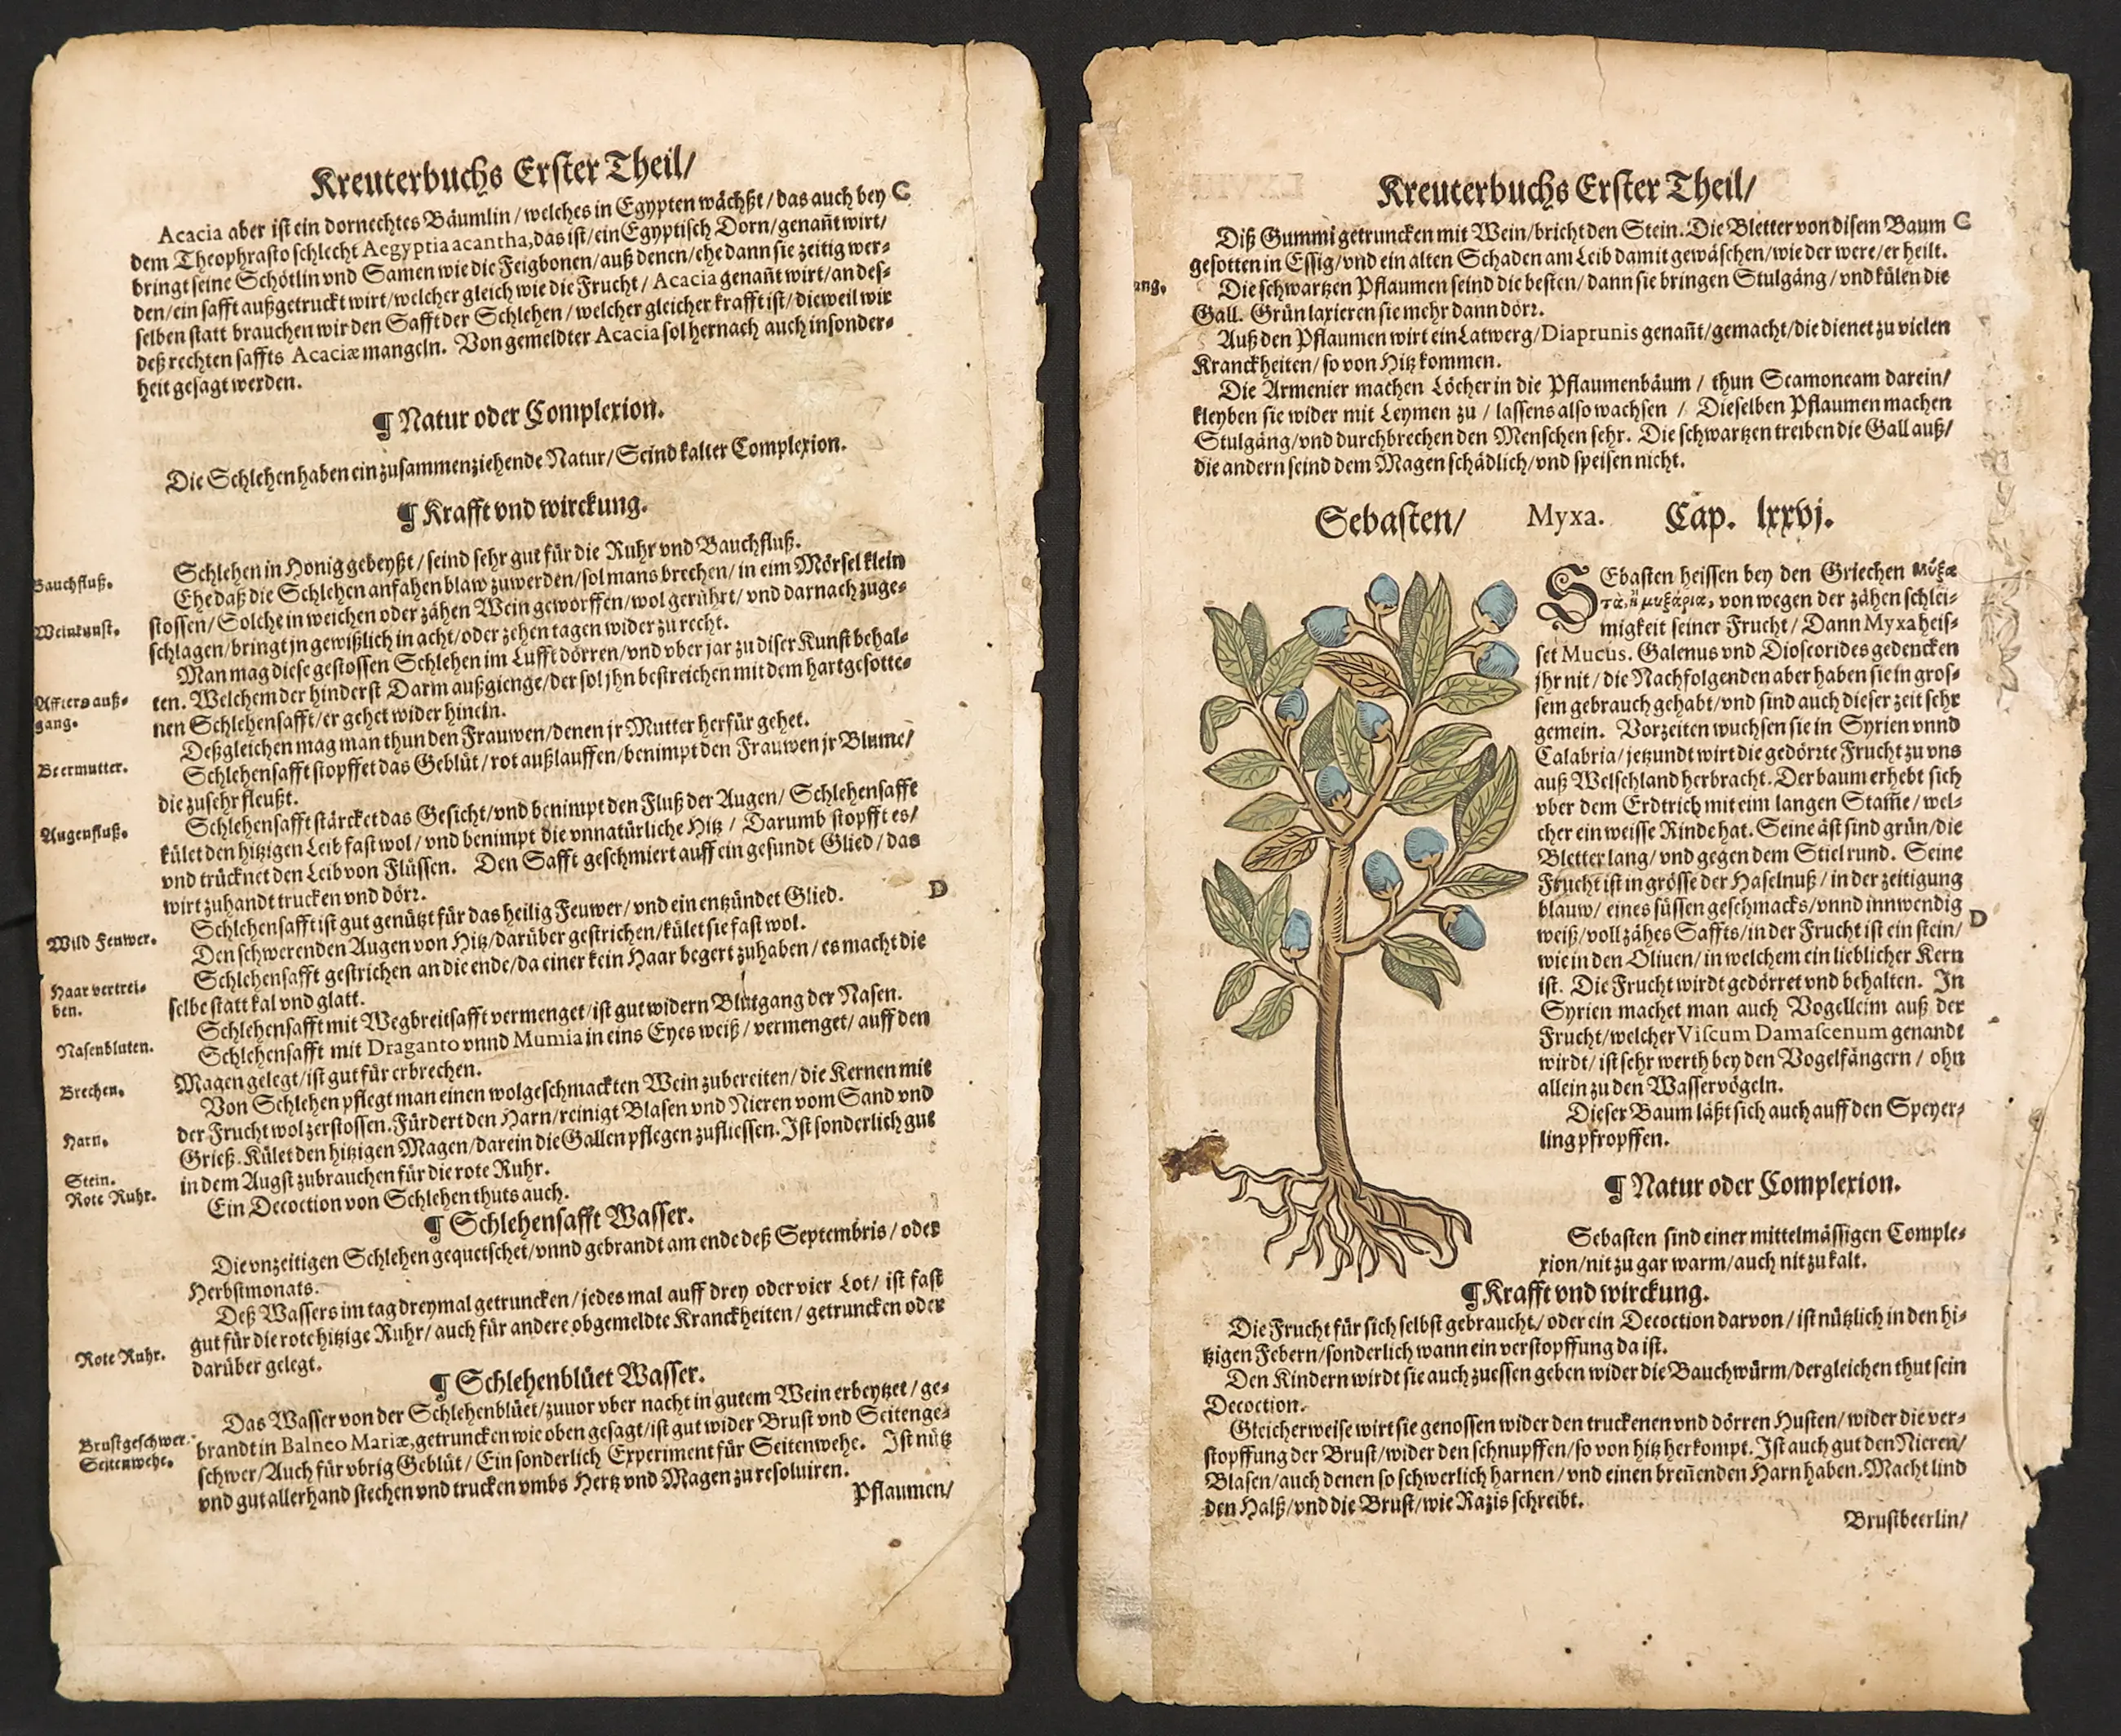 Kreuterbuchs Erster Theil/
Acacia aber ist ein dornechtes Bäumlin/welches in Egypten wächßt/das auch bey C
dem Theophrasto schlecht Aegyptia acantha, das ist/ein Egyptisch Dorn/genañt wirt/
bringt seine Schötlin vnd Samen wie die Feigbonen/auß denen/ehe dann sie zeitig wer-
den/ein safft außgetruckt wirt/welcher gleich wie die Frucht/Acacia genañt wirt/an des-
selben statt brauchen wir den Safft der Schlehen/welcher gleicher krafft ist/dieweil wir
deß rechten saffts Acaciæ mangeln. Von gemeldter Acacia sol hernach auch insonder-
heit gesagt werden.
¶ Natur oder Complexion.
Die Schlehen haben ein zusammenziehende Natur/Seind kalter Complexion.
¶ Krafft vnd wirckung.
Schlehen in Honig gebeyßt/seind sehr gut für die Ruhr vnd Bauchfluß.
Bauchfluß.
Ehe daß die Schlehen anfahen blaw zuwerden/sol mans brechen/in eim Mörsel klein
Weinkunst.
stossen/Solche in weichen oder zähen Wein geworffen/wol gerührt/vnd darnach zuge-
schlagen/bringt jn gewißlich in acht/oder zehen tagen wider zu recht.
Man mag diese gestossen Schlehen im Lufft dörren/vnd vber jar zu diser Kunst behal-
Affters auß-
gang.
ten. Welchem der hinderst Darm außgienge/der sol jhn bestreichen mit dem hartgesotte-
nen Schlehensafft/er gehet wider hinein.
Deßgleichen mag man thun den Frauwen/denen jr Mutter herfür gehet.
Beermutter.
Schlehensafft stopffet das Geblüt/rot außlauffen/benimpt den Frauwen jr Blume/
die zu sehr fleußt.
Augenfluß.
Schlehensafft stärcket das Gesicht/vnd benimpt den Fluß der Augen/Schlehensafft
kület den hitzigen Leib fast wol/vnd benimpt die vnnatürliche Hitz/Darumb stopfft es/
vnd trücknet den Leib von Flüssen. Den Safft geschmiert auff ein gesundt Glied/das
wirt zuhandt trucken vnd dörr. D
Schlehensafft ist gut genützt für das heilig Feuwer/vnd ein entzündet Glied.
Wild Feuwer.
Den schwerenden Augen von Hitz/darüber gestrichen/kület sie fast wol.
Schlehensafft gestrichen an die ende/da einer kein Haar begert zuhaben/es macht die
Haar vertrei-
ben.
selbe statt kal vnd glatt.
Schlehensafft mit Wegbreitsafft vermenget/ist gut widern Blutgang der Nasen.
Nasenbluten.
Schlehensafft mit Draganto vnnd Mumia in eins Eyes weiß/vermenget/auff den
Brechen.
Magen gelegt/ist gut für erbrechen.
Von Schlehen pflegt man einen wolgeschmackten Wein zubereiten/die Kernen mit
Harn.
der Frucht wol zerstossen. Fürdert den Harn/reinigt Blasen vnd Nieren vom Sand vnd
Stein.
Grieß. Kület den hitzigen Magen/darein die Gallen pflegen zufliessen. Ist sonderlich gut
Rote Ruhr.
in dem Augst zubrauchen für die rote Ruhr.
Ein Decoction von Schlehen thuts auch.
¶ Schlehensafft Wasser.
Die vnzeitigen Schlehen gequetschet/vnnd gebrandt am ende deß Septembris/oder
Herbstmonats.
Deß Wassers im tag dreymal getruncken/jedes mal auff drey oder vier Lot/ist fast
Rote Ruhr.
gut für die rote hitzige Ruhr/auch für andere obgemeldte Kranckheiten/getruncken oder
darüber gelegt.
¶ Schlehenblüet Wasser.
Das Wasser von der Schlehenblüet/zuuor vber nacht in gutem Wein erbeytzet/ge-
Brustgeschwer.
Seitenwehe.
brandt in Balneo Mariæ, getruncken wie oben gesagt/ist gut wider Brust vnd Seitenge-
schwer/Auch für vbrig Geblüt/Ein sonderlich Experiment für Seitenwehe. Ist nütz
vnd gut allerhand stechen vnd trucken vmbs Hertz vnd Magen zu resoluiren.
Pflaumen/
Kreuterbuchs Erster Theil/
Diß Gummi getruncken mit Wein/bricht den Stein. Die Bletter von disem Baum C
gesotten in Essig/vnd ein alten Schaden am Leib damit gewäschen/wie der were/er heilt.
ang.
Die schwartzen Pflaumen seind die besten/dann sie bringen Stulgäng/vnd külen die
Gall. Grün laxieren sie mehr dann dörr.
Auß den Pflaumen wirt ein Latwerg/Diaprunis genañt/gemacht/die dienet zu vielen
Kranckheiten/so von Hitz kommen.
Die Armenier machen Löcher in die Pflaumenbäum/thun Scamoneam darein/
kleyben sie wider mit Leymen zu/lassens also wachsen/Dieselben Pflaumen machen
Stulgäng/vnd durchbrechen den Menschen sehr. Die schwartzen treiben die Gall auß/
die andern seind dem Magen schädlich/vnd speisen nicht.
Sebasten/ Myxa. Cap. lxxvj.
SEbasten heissen bey den Griechen μύξα
τὰ, ἢ μυξάρια, von wegen der zähen schlei-
migkeit seiner Frucht/Dann Myxa heis-
set Mucus. Galenus vnd Dioscorides gedencken
jhr nit/die Nachfolgenden aber haben sie in gros-
sem gebrauch gehabt/vnd sind auch dieser zeit sehr
gemein. Vorzeiten wuchsen sie in Syrien vnnd
Calabria/jetzundt wirt die gedörrte Frucht zu vns
auß Welschland herbracht. Der baum erhebt sich
vber dem Erdtrich mit eim langen Stam̃e/wel-
cher ein weisse Rinde hat. Seine äst sind grün/die
Bletter lang/vnd gegen dem Stiel rund. Seine
Frucht ist in grösse der Haselnuß/in der zeitigung
blauw/eines süssen geschmacks/vnnd innwendig
weiß/voll zähes Saffts/in der Frucht ist ein stein/ D
wie in den Oliuen/in welchem ein lieblicher Kern
ist. Die Frucht wirdt gedörret vnd behalten. In
Syrien machet man auch Vogelleim auß der
Frucht/welcher Viscum Damascenum genandt
wirdt/ist sehr werth bey den Vogelfängern/ohn
allein zu den Wasservögeln.
Dieser Baum läßt sich auch auff den Speyer-
ling pfropffen.
¶ Natur oder Complexion.
Sebasten sind einer mittelmässigen Comple-
xion/nit zu gar warm/auch nit zu kalt.
¶ Krafft vnd wirckung.
Die Frucht für sich selbst gebraucht/oder ein Decoction darvon/ist nützlich in den hi-
tzigen Febern/sonderlich wann ein verstopffung da ist.
Den Kindern wirdt sie auch zu essen geben wider die Bauchwürm/dergleichen thut sein
Decoction.
Gleicherweise wirt sie genossen wider den truckenen vnd dörren Husten/wider die ver-
stopffung der Brust/wider den schnupffen/so von hitz herkompt. Ist auch gut den Nieren/
Blasen/auch denen so schwerlich harnen/vnd einen breñenden Harn haben. Macht lind
den Halß/vnd die Brust/wie Razis schreibt.
Brustbeerlin/